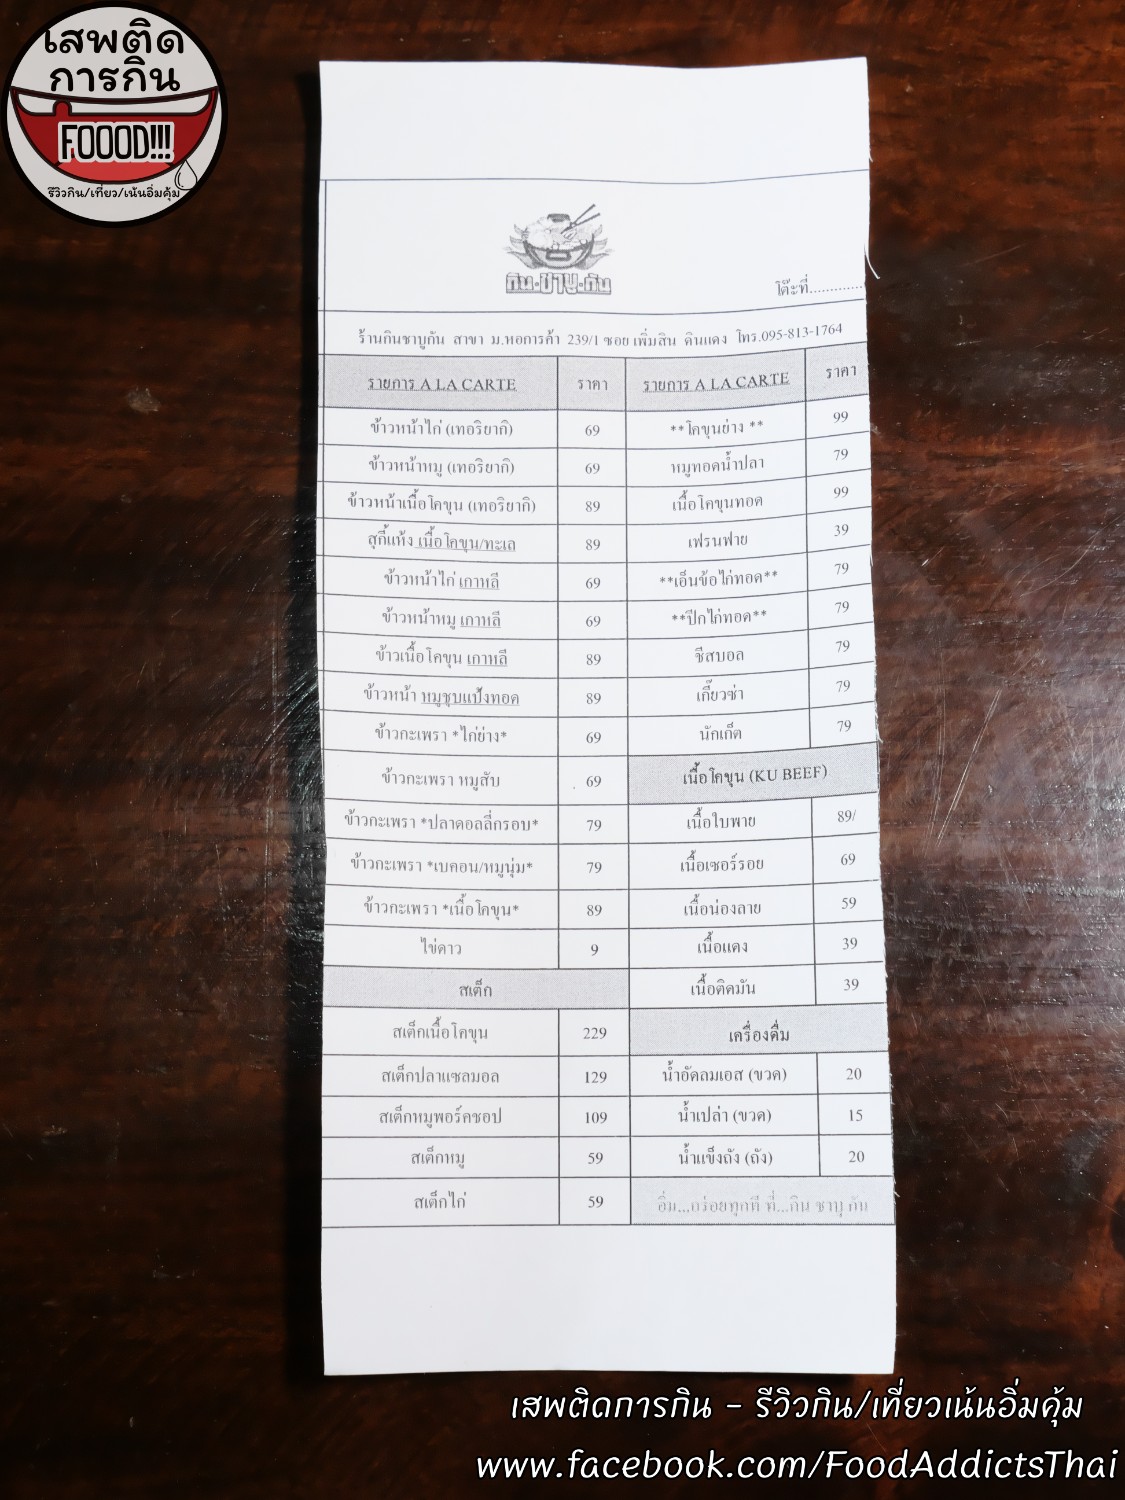 เสพติด
การกิน
FOOOD!!!
รีวิวกิน/เที่ยว/เน้นอิ่มคุ้ม
กิน-ชาบู-กัน
โต๊ะที่.............
ร้านกินชาบูกัน สาขา ม.หอการค้า 239/1 ซอย เพิ่มสิน ดินแดง โทร.095-813-1764
รายการ A LA CARTE ราคา รายการ A LA CARTE ราคา
ข้าวหน้าไก่ (เทอริยากิ) 69 **โคขุนย่าง ** 99
ข้าวหน้าหมู (เทอริยากิ) 69 หมูทอดน้ำปลา 79
ข้าวหน้าเนื้อโคขุน (เทอริยากิ) 89 เนื้อโคขุนทอด 99
สุกี้แห้ง เนื้อโคขุน/ทะเล 89 เฟรนฟาย 39
ข้าวหน้าไก่ เกาหลี 69 **เอ็นข้อไก่ทอด** 79
ข้าวหน้าหมู เกาหลี 69 **ปีกไก่ทอด** 79
ข้าวเนื้อโคขุน เกาหลี 89 ชีสบอล 79
ข้าวหน้า หมูชุบแป้งทอด 89 เกี๊ยวซ่า 79
ข้าวกะเพรา *ไก่ย่าง* 69 นักเก็ต 79
ข้าวกะเพรา หมูสับ 69 เนื้อโคขุน (KU BEEF)
ข้าวกะเพรา *ปลาดอลลี่กรอบ* 79 เนื้อใบพาย 89/
ข้าวกะเพรา *เบคอน/หมูนุ่ม* 79 เนื้อเซอร์รอย 69
ข้าวกะเพรา *เนื้อโคขุน* 89 เนื้อน่องลาย 59
ไข่ดาว 9 เนื้อแดง 39
สเต็ก เนื้อติดมัน 39
สเต็กเนื้อโคขุน 229 เครื่องดื่ม
สเต็กปลาแซลมอล 129 น้ำอัดลมเอส (ขวด) 20
สเต็กหมูพอร์คชอป 109 น้ำเปล่า (ขวด) 15
สเต็กหมู 59 น้ำแข็งถัง (ถัง) 20
สเต็กไก่ 59 อิ่ม...อร่อยทุกที ที่...กิน ชาบู กัน
เสพติดการกิน - รีวิวกิน/เที่ยวเน้นอิ่มคุ้ม
www.facebook.com/FoodAddictsThai